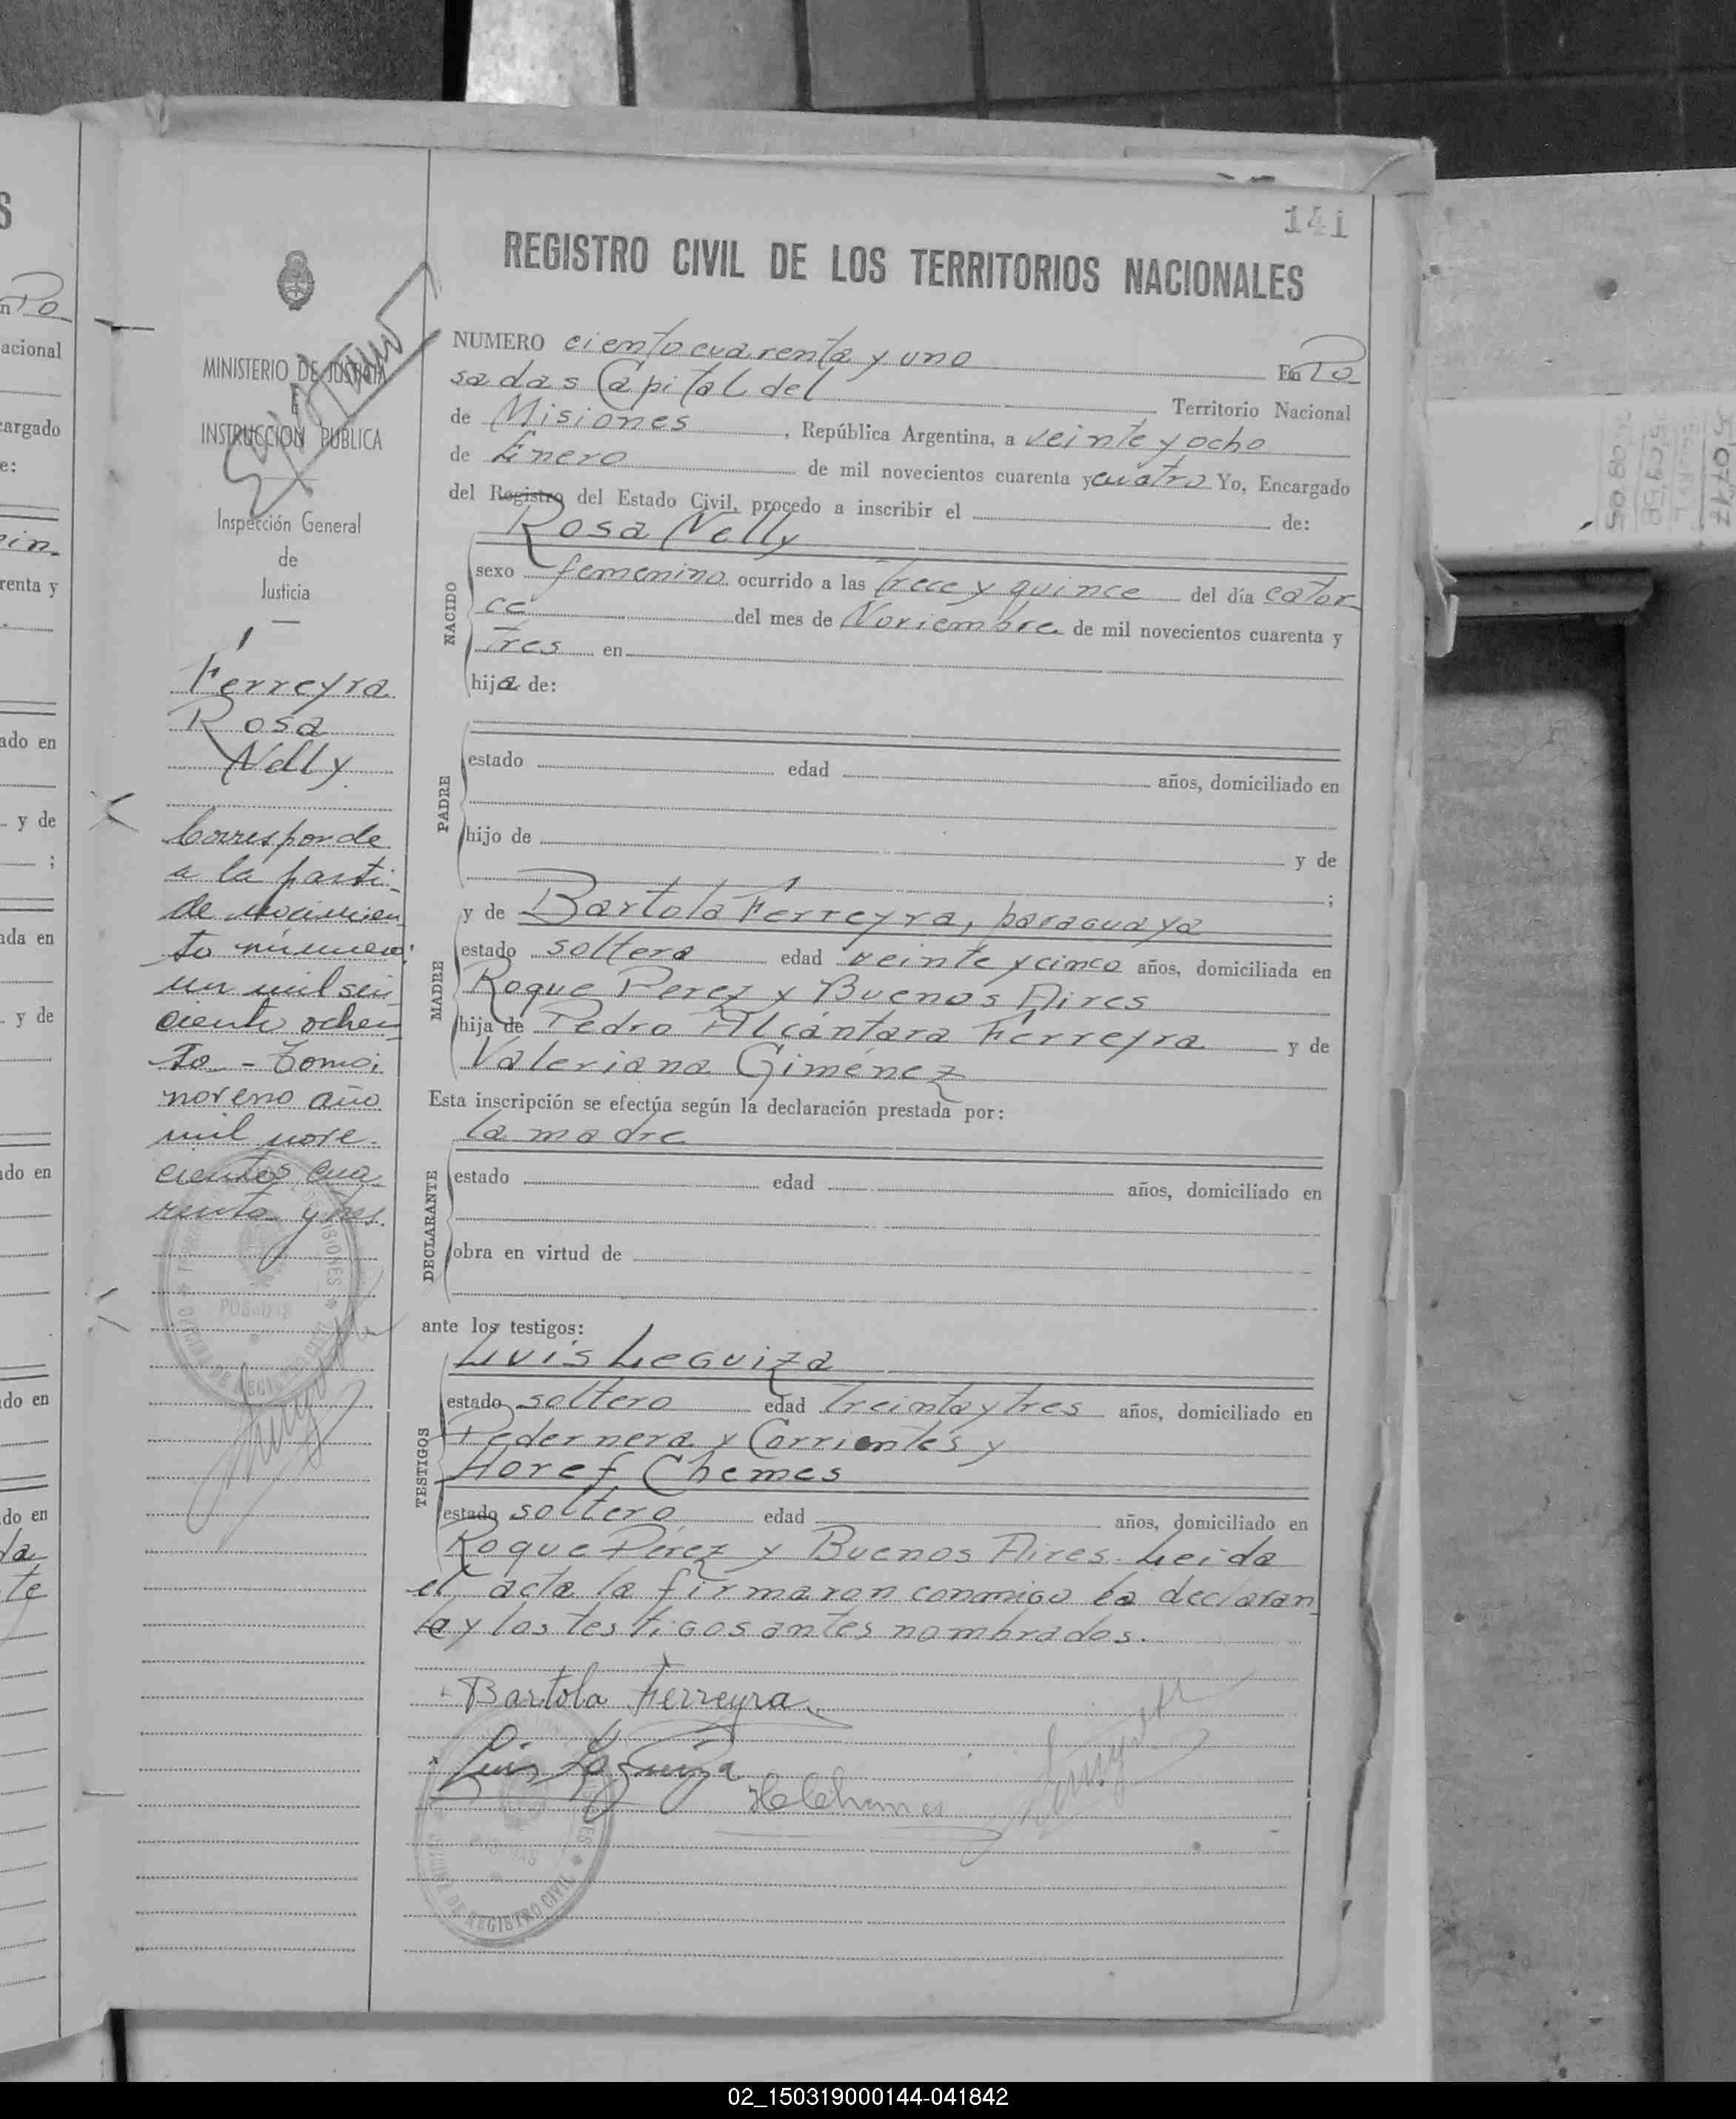 141
REGISTRO CIVIL DE LOS TERRITORIOS NACIONALES
NUMERO ciento cuarenta y uno En Po
sadas Capital del Territorio Nacional
de Misiones, República Argentina, a veinte y ocho
de Enero de mil novecientos cuarenta y cuatro Yo, Encargado
del Registro del Estado Civil, procedo a inscribir el de:
Rosa Nelly
NACIDO
sexo femenino ocurrido a las trece y quince del día cator
ce del mes de Noviembre de mil novecientos cuarenta y
tres en
hija de:
PADRE
estado edad años, domiciliado en
hijo de y de
;
MADRE
y de Bartola Ferreyra, paraguaya
estado soltera edad veinte y cinco años, domiciliada en
Roque Perez y Buenos Aires
hija de Pedro Alcántara Ferreyra y de
Valeriana Giménez
Esta inscripción se efectúa según la declaración prestada por:
la madre
DECLARANTE
estado edad años, domiciliado en
obra en virtud de
ante los testigos:
TESTIGOS
Luis Leguiza
estado soltero edad treinta y tres años, domiciliado en
Pedernera y Corrientes y
Horef Chemes
estado soltero edad años, domiciliado en
Roque Pérez y Buenos Aires. Leida
el acta la firmaron conmigo la declaran
te y los testigos antes nombrados.
Bartola Ferreyra
Luis Leguiza
H Chemes
POSADAS
REGISTRO CIVIL
MINISTERIO DE JUSTICIA
E
INSTRUCCIÓN PÚBLICA
Inspección General
de
Justicia
Ferreyra
Rosa
Nelly.
Corresponde
a la parti-
de nacimien
to número:
un mil seis
ciento ochen
ta - Tomo:
noveno año
mil nove-
cientos cua
renta y tres.
MISIONES
POSADAS
S
En Po
acional
cargado
e:
renta y
ado en
y de
;
ada en
y de
do en
do en
do en
da
te
02_150319000144-041842